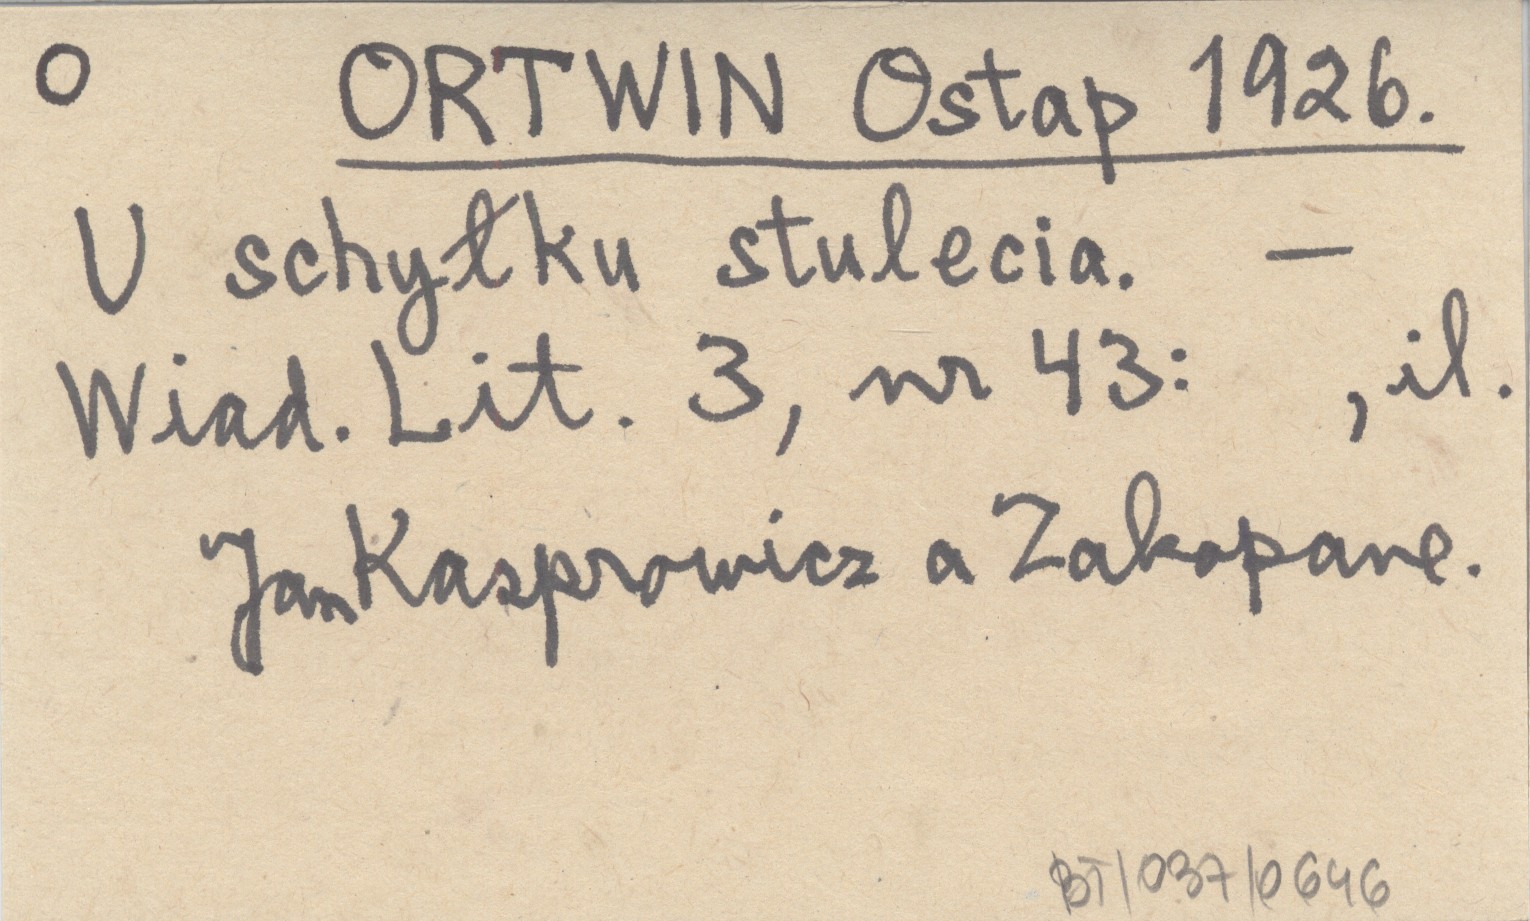 O ORTWIN Ostap 1926.
U schyłku stulecia. —
Wiad. Lit. 3, nr 43: , il.
Jan Kasprowicz a Zakopane.
BT/037/0646